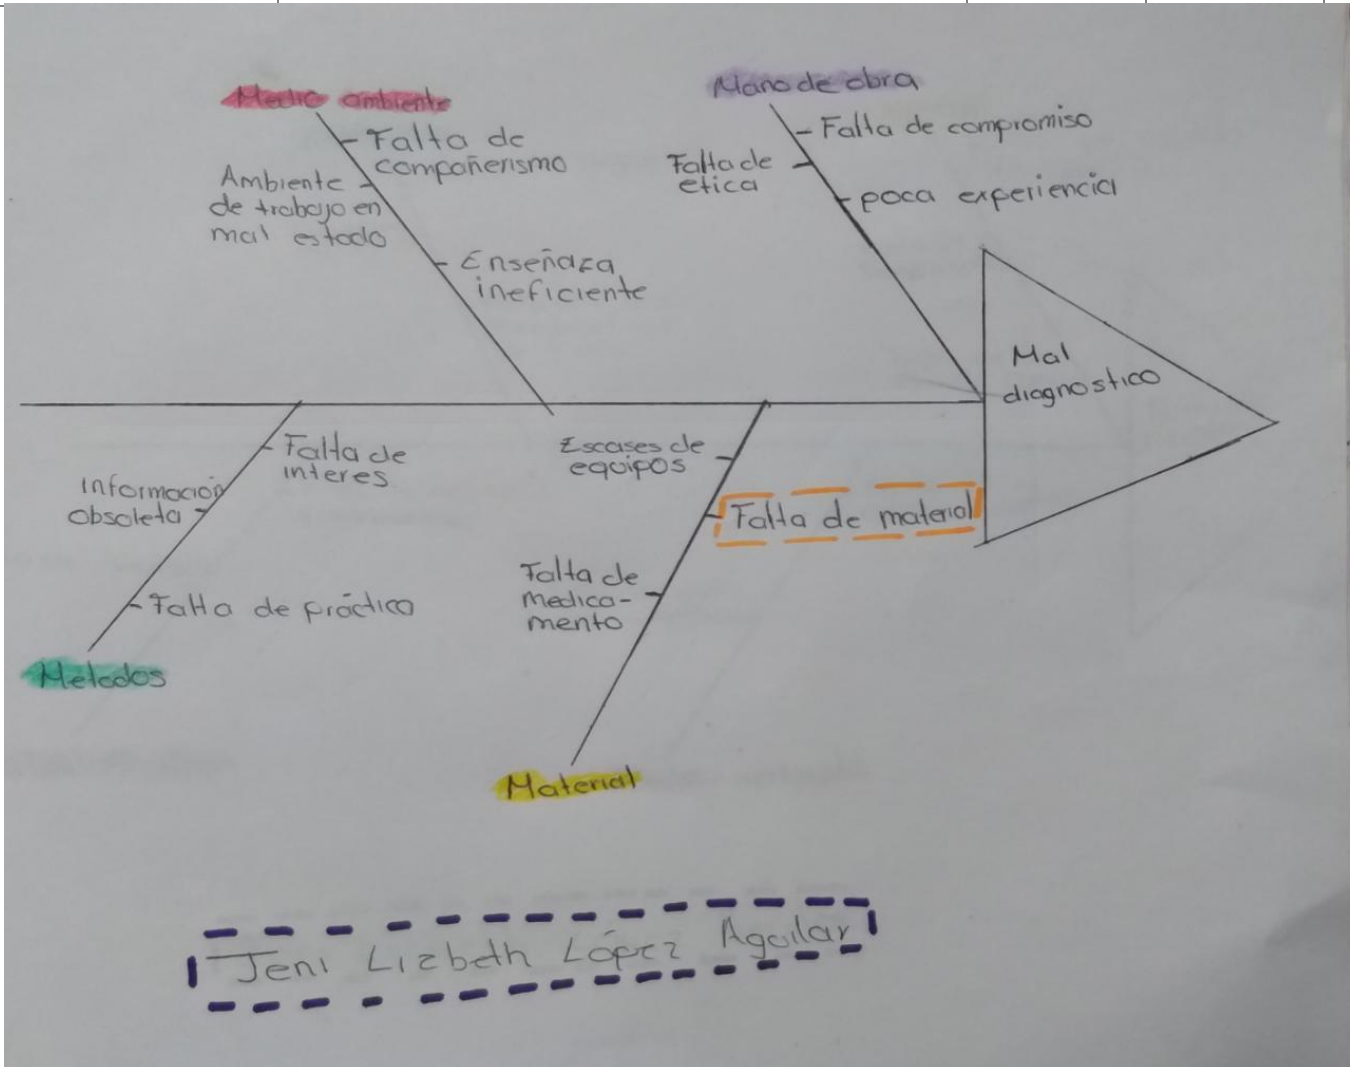 Medio ambiente
Falta de
compañerismo
Ambiente
de trabajo en
mal estado
Enseñaza
ineficiente
Mano de obra
Falta de compromiso
Falta de
etica
poca experiencia
Mal
diagnostico
Falta de
interes
Información
Obsoleta
Falta de práctica
Metodos
Escases de
equipos
Falta de material
Falta de
medica-
mento
Material
Jeni Lizbeth López Aguilar